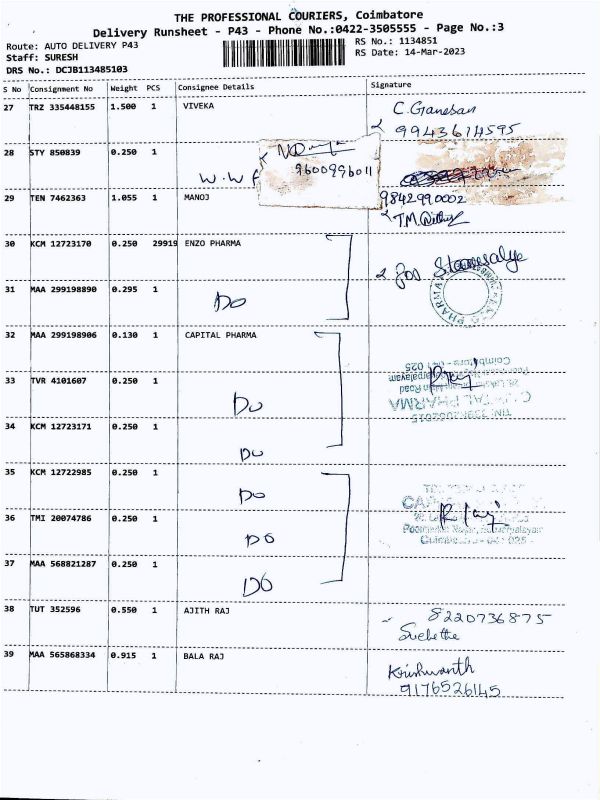 THE PROFESSIONAL COURIERS, Coimbatore
Delivery Runsheet - P43 - Phone No.:0422-3505555 - Page No.:3
Route: AUTO DELIVERY P43
RS No.: 1134851
Staff: SURESH
RS Date: 14-Mar-2023
DRS No.: DCJB113485103
S No Consignment No Weight PCS Consignee Details Signature
27 TRZ 335448155 1.500 1 VIVEKA
C. Ganesan
9943614595
28 STY 850839 0.250 1
9600996011
W.W
29 TEN 7462363 1.055 1 MANOJ
9842990002
T.M.
30 KCM 12723170 0.250 29919 ENZO PHARMA
for
PHARMA
31 MAA 299198890 0.295 1
Do
32 MAA 299198906 0.130 1 CAPITAL PHARMA
Coimbatore - 641 025
33 TVR 4101607 0.250 1
Do
34 KCM 12723171 0.250 1
Do
35 KCM 12722985 0.250 1
Do
36 TMI 20074786 0.250 1
Do
37 MAA 568821287 0.250 1
Do
38 TUT 352596 0.550 1 AJITH RAJ
8220736875
39 MAA 565868334 0.915 1 BALA RAJ
Krishwanth
9176526145